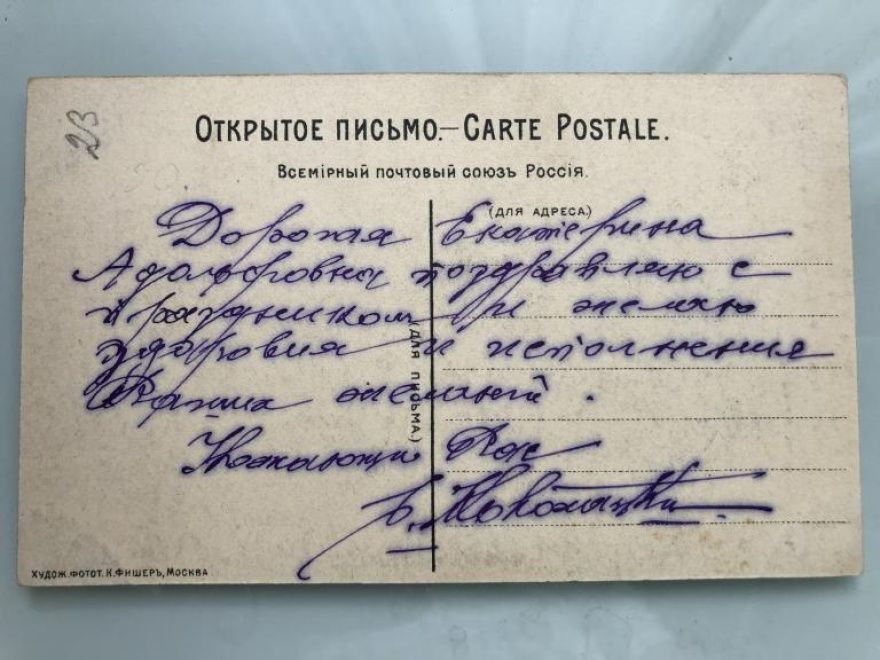 23
ОТКРЫТОЕ ПИСЬМО.–CARTE POSTALE.
Всемірный почтовый союзъ Россія.
(ДЛЯ АДРЕСА.)
Дорогая Екатерина
Адольфовна поздравляю с
праздником и желаю
здоровия и исполнения
Ваших желаний.
(ДЛЯ ПИСЬМА.)
Уважающий Вас
ХУДОЖ. ФОТОТ. К. ФИШЕРЪ, МОСКВА